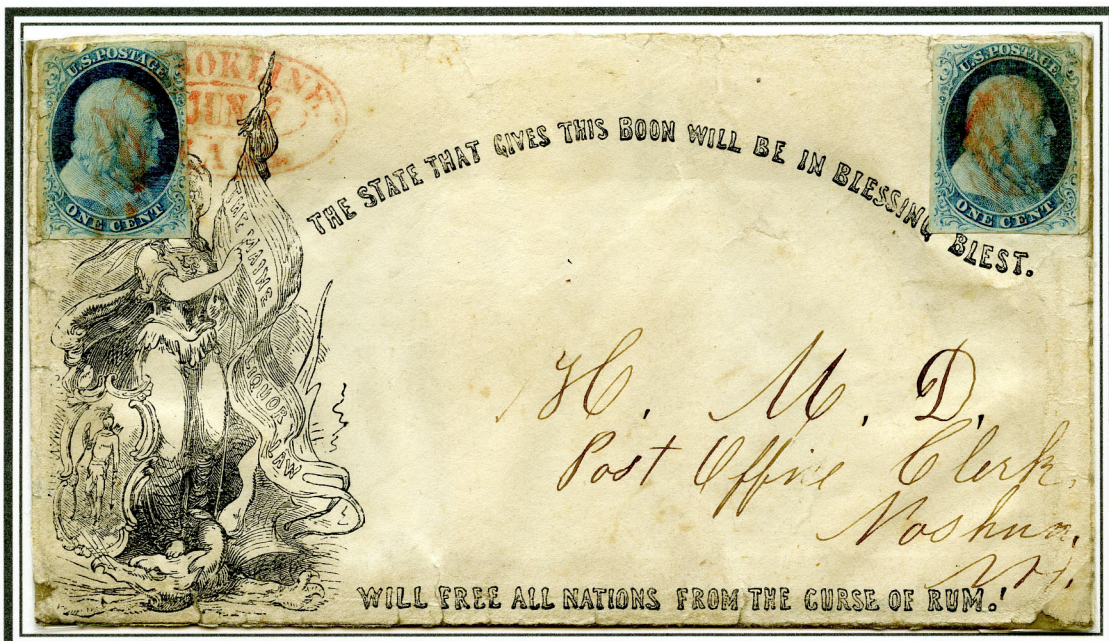 U.S. POSTAGE
ONE CENT
JUN
U.S. POSTAGE
ONE CENT
THE STATE THAT GIVES THIS BOON WILL BE IN BLESSING BLEST.
THE MAINE
LIQUOR LAW
H. M. D.
Post Office Clerk,
Nashua,
N.H.
WILL FREE ALL NATIONS FROM THE CURSE OF RUM.!